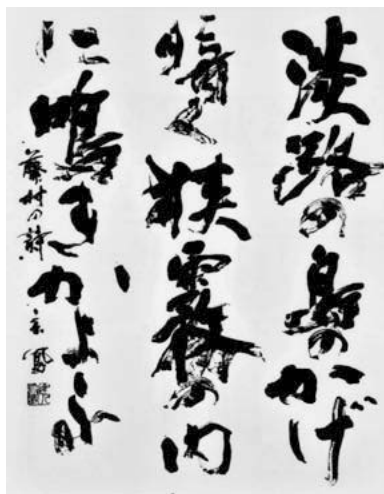 淡路の島のかげ
暗く狭霧の内
に鳴きかよふ
藤村の詩